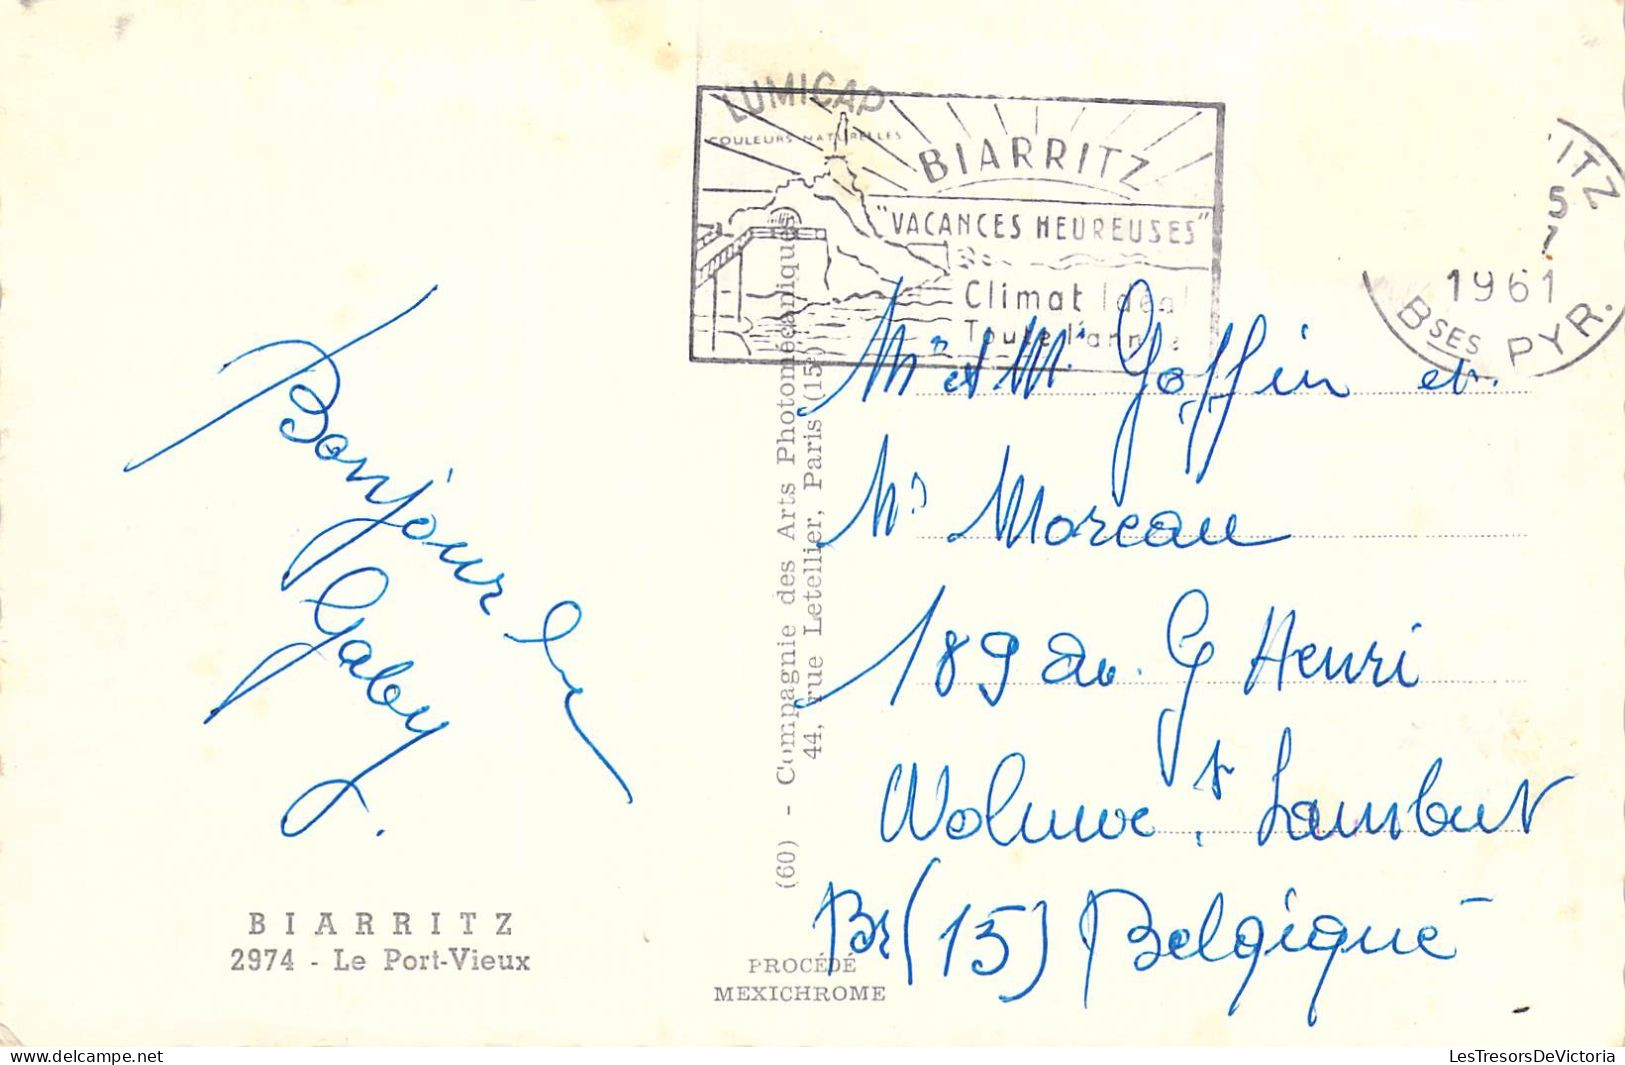 LUMICAP
COULEURS NATURELLES
BIARRITZ
"VACANCES HEUREUSES"
Climat Idéal
Toute l'année
ITZ
5
7
1961
Bses PYR.
Bonjour
Gaby
BIARRITZ
2974 - Le Port-Vieux
(60) - Compagnie des Arts Photomécaniques
44, rue Letellier, Paris (15e)
PROCÉDÉ
MEXICHROME
Mr et Me Goffin et
Mr Moreau
189 av. G Henri
Woluwe St Lambert
Br (15) Belgique
www.delcampe.net
LesTresorsDeVictoria